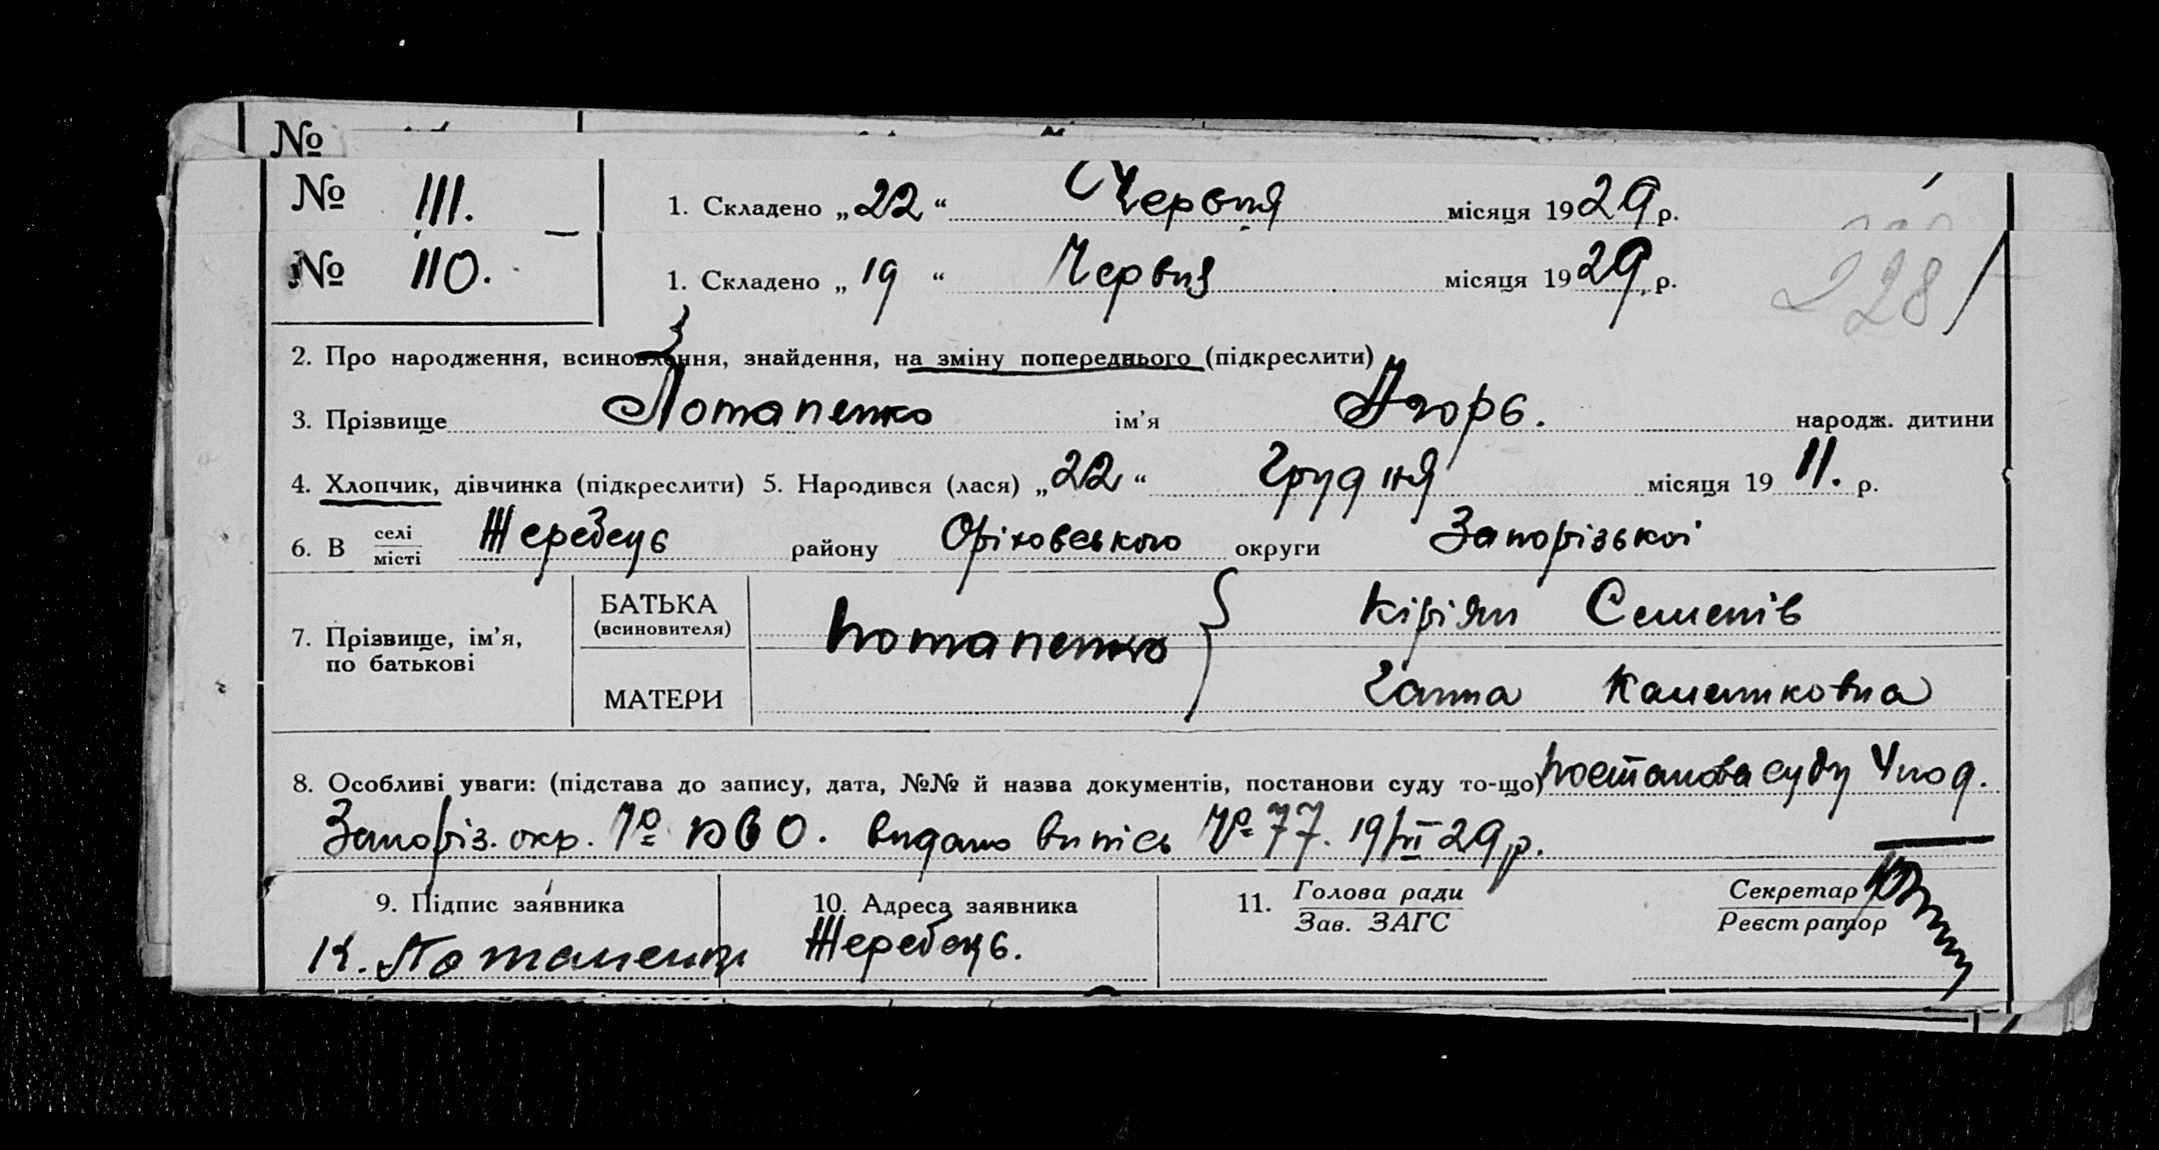 №
№ 111. 1. Складено „22“ Червня місяця 1929 р.
№ 110. 1. Складено „19“ Червня місяця 1929 р.
228
2. Про народження, всиновлення, знайдення, на зміну попереднього (підкреслити)
3. Прізвище Потапенко ім’я Ігорь. народж. дитини
4. Хлопчик, дівчинка (підкреслити) 5. Народився (лася) „22“ Грудня місяця 19 11. р.
6. В селі місті Жеребець району Оріховського округи Запорізької
7. Прізвище, ім’я, по батькові
БАТЬКА (всиновителя) Потапенко Кіріян Семенів
МАТЕРИ Ганна
8. Особливі уваги: (підстава до запису, дата, №№ й назва документів, постанови суду то-що) Постанова суду
Запоріз. окр. № видано випісь № 77. 19/VI 29 р.
9. Підпис заявника 10. Адреса заявника 11. Голова ради Зав. ЗАГС Секретар Реєстратор
К. Потапенко Жеребець.